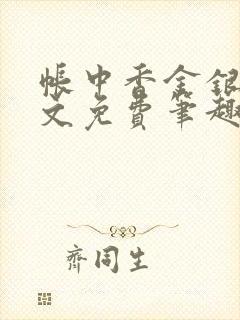 帐中香金银
文免费笔趣
齐同生